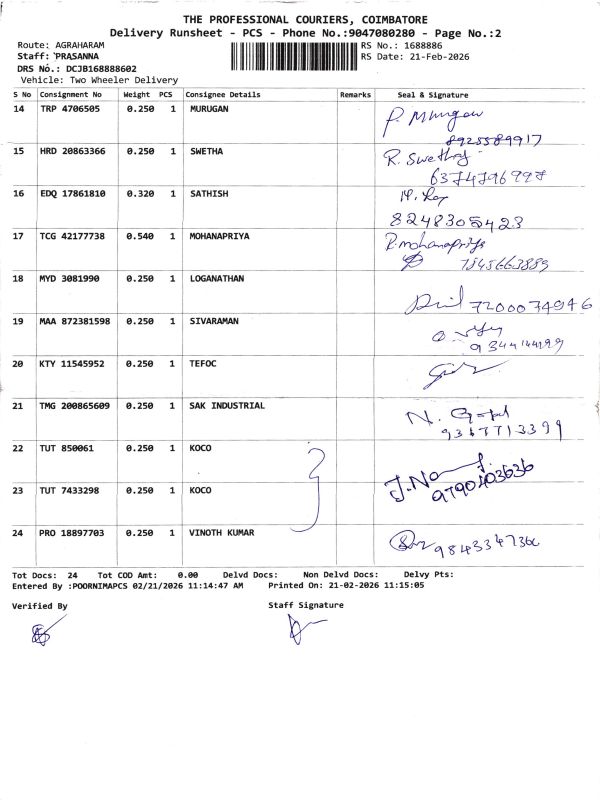 THE PROFESSIONAL COURIERS, COIMBATORE
Delivery Runsheet - PCS - Phone No.:9047080280 - Page No.:2
Route: AGRAHARAM RS No.: 1688886
Staff: PRASANNA RS Date: 21-Feb-2026
DRS No.: DCJB168888602
Vehicle: Two Wheeler Delivery
S No Consignment No Weight PCS Consignee Details Remarks Seal & Signature
14 TRP 4706505 0.250 1 MURUGAN P. Murugan
8925589917
15 HRD 20863366 0.250 1 SWETHA R. Swetha
6374796998
16 EDQ 17861810 0.320 1 SATHISH
8248305423
17 TCG 42177738 0.540 1 MOHANAPRIYA P.mohanapriya
7845663889
18 MYD 3081990 0.250 1 LOGANATHAN
7200074946
19 MAA 872381598 0.250 1 SIVARAMAN
9344144199
20 KTY 11545952 0.250 1 TEFOC
21 TMG 200865609 0.250 1 SAK INDUSTRIAL N. Gopal
9367713399
22 TUT 850061 0.250 1 KOCO
23 TUT 7433298 0.250 1 KOCO
9790403636
24 PRO 18897703 0.250 1 VINOTH KUMAR
Tot Docs: 24 Tot COD Amt: 0.00 Delvd Docs: Non Delvd Docs: Delvy Pts:
Entered By :POORNIMAPCS 02/21/2026 11:14:47 AM Printed On: 21-02-2026 11:15:05
Verified By Staff Signature